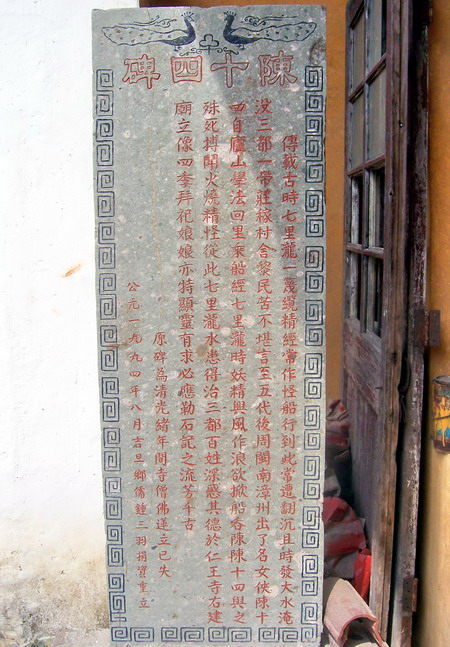 陳十四碑
傳載古時七里瀧一篾纜精經常作怪船行到此常遭翻沉且時發大水淹
没三都一帶莊稼村舍黎民苦不堪言至五代後周閩南漳州出了名女俠陳十
四自廬山學法回里乘船經七里瀧時妖精興風作浪欲掀船吞陳陳十四與之
殊死搏鬭火燒精怪從此七里瀧水患得治三都百姓深感其德於仁王寺右建
廟立像四季拜祀娘娘亦持顯靈有求必應勒石記之流芳千古
原碑為清光緒年間寺僧佛送立已失
公元一九九四年八月吉旦鄉儒鍾三羽捐資重立